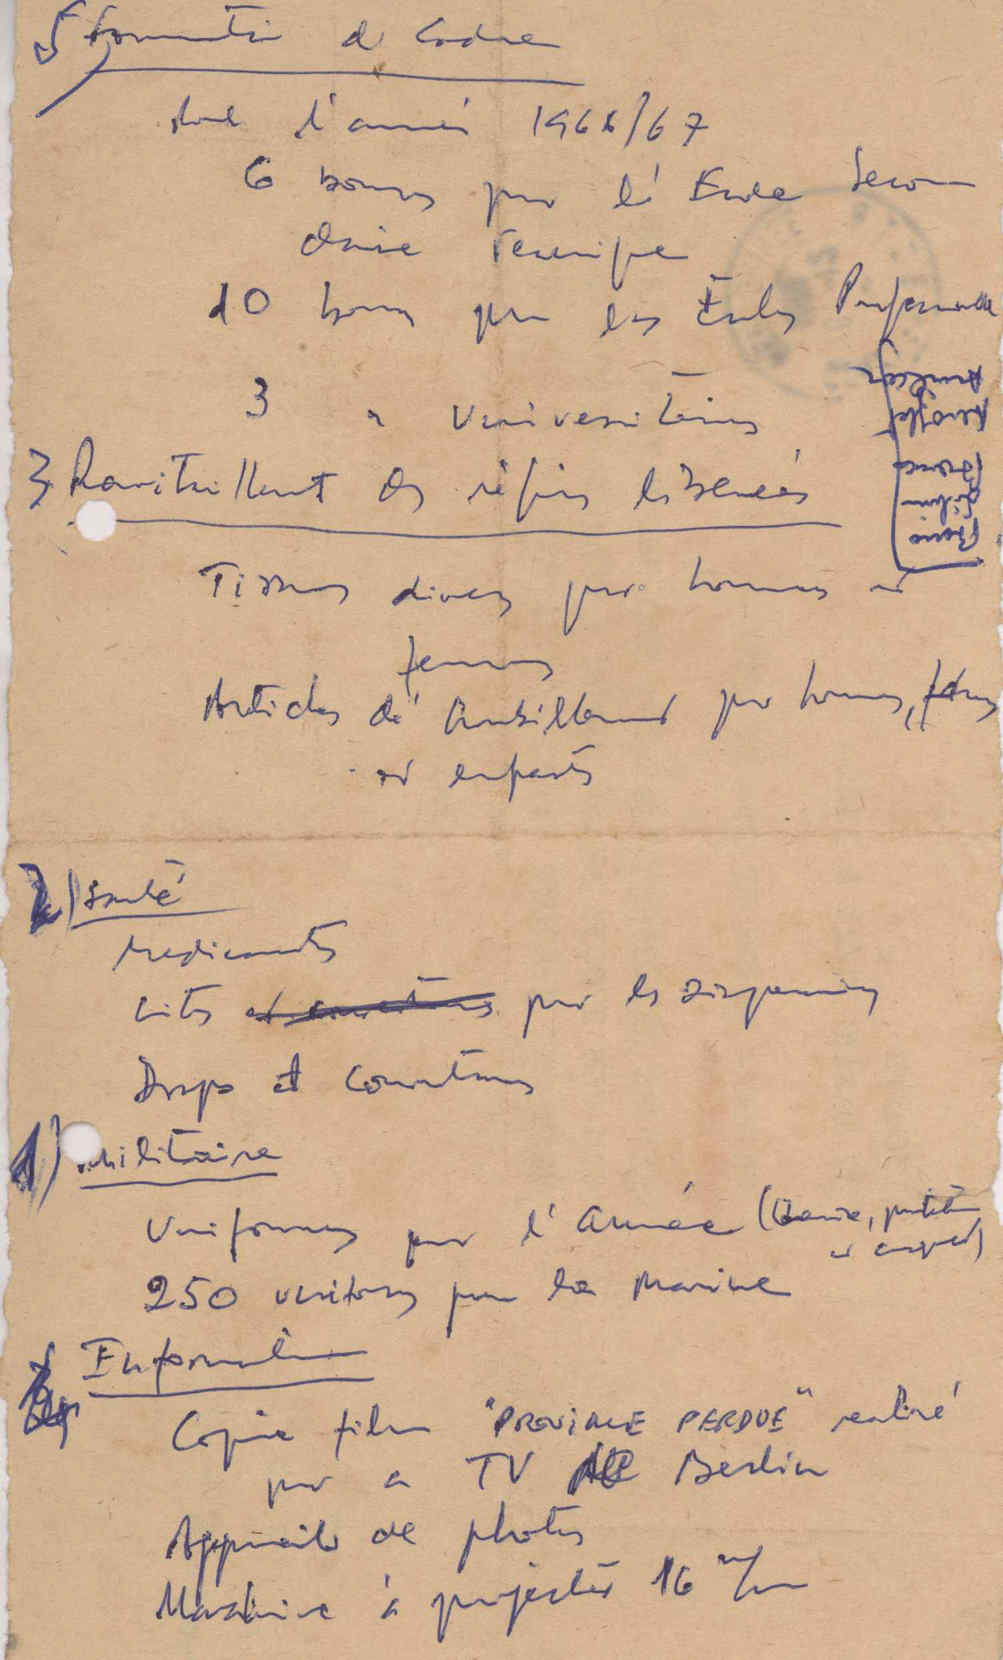 5) Formation de Cadre
Pour l'année 1966/67
6 bourses pour l'École Secon
daire Technique
10 bourses pour les Écoles Professionnelle
3 " Universitaires
3) Ravitaillement des régions libérées
Tissus divers pour hommes et
femmes
Articles d'habillement pour hommes, femmes
et enfants
2) Santé
Medicaments
Lits pour les Dispensaires
Draps et Couvertures
1) Militaire
Uniformes pour l'Armée (
250 pour la Marine
Information
Copie film "PROVINCE PERDUE" realisé
par la TV Berlin
Appareils de photos
Machine à projecter 16 m/m